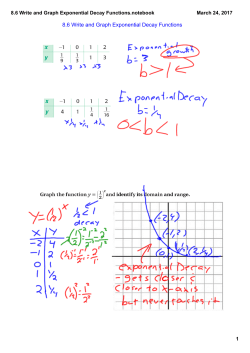 8.6 Write and Graph Exponential Decay Functions.notebook March 24, 2017
8.6 Write and Graph Exponential Decay Functions
x -1 0 1 2
y 1/9 1/3 1 3
x3 x3 x3
Exponential
b=3 growth
b>1
x -1 0 1 2
y 4 1 1/4 1/16
x1/4 x1/4 x1/4
Exponential Decay
b=1/4
0<b<1
Graph the function y = (1/2)^x and identify its domain and range.
y=(1/2)^x 1/2<1
decay
x y
-2 4
-1 2
0 1
1 1/2
2 1/4
(-2,4)
(-1,2)
exponential decay
- gets closer &
closer to x-axis
but never touches it
1